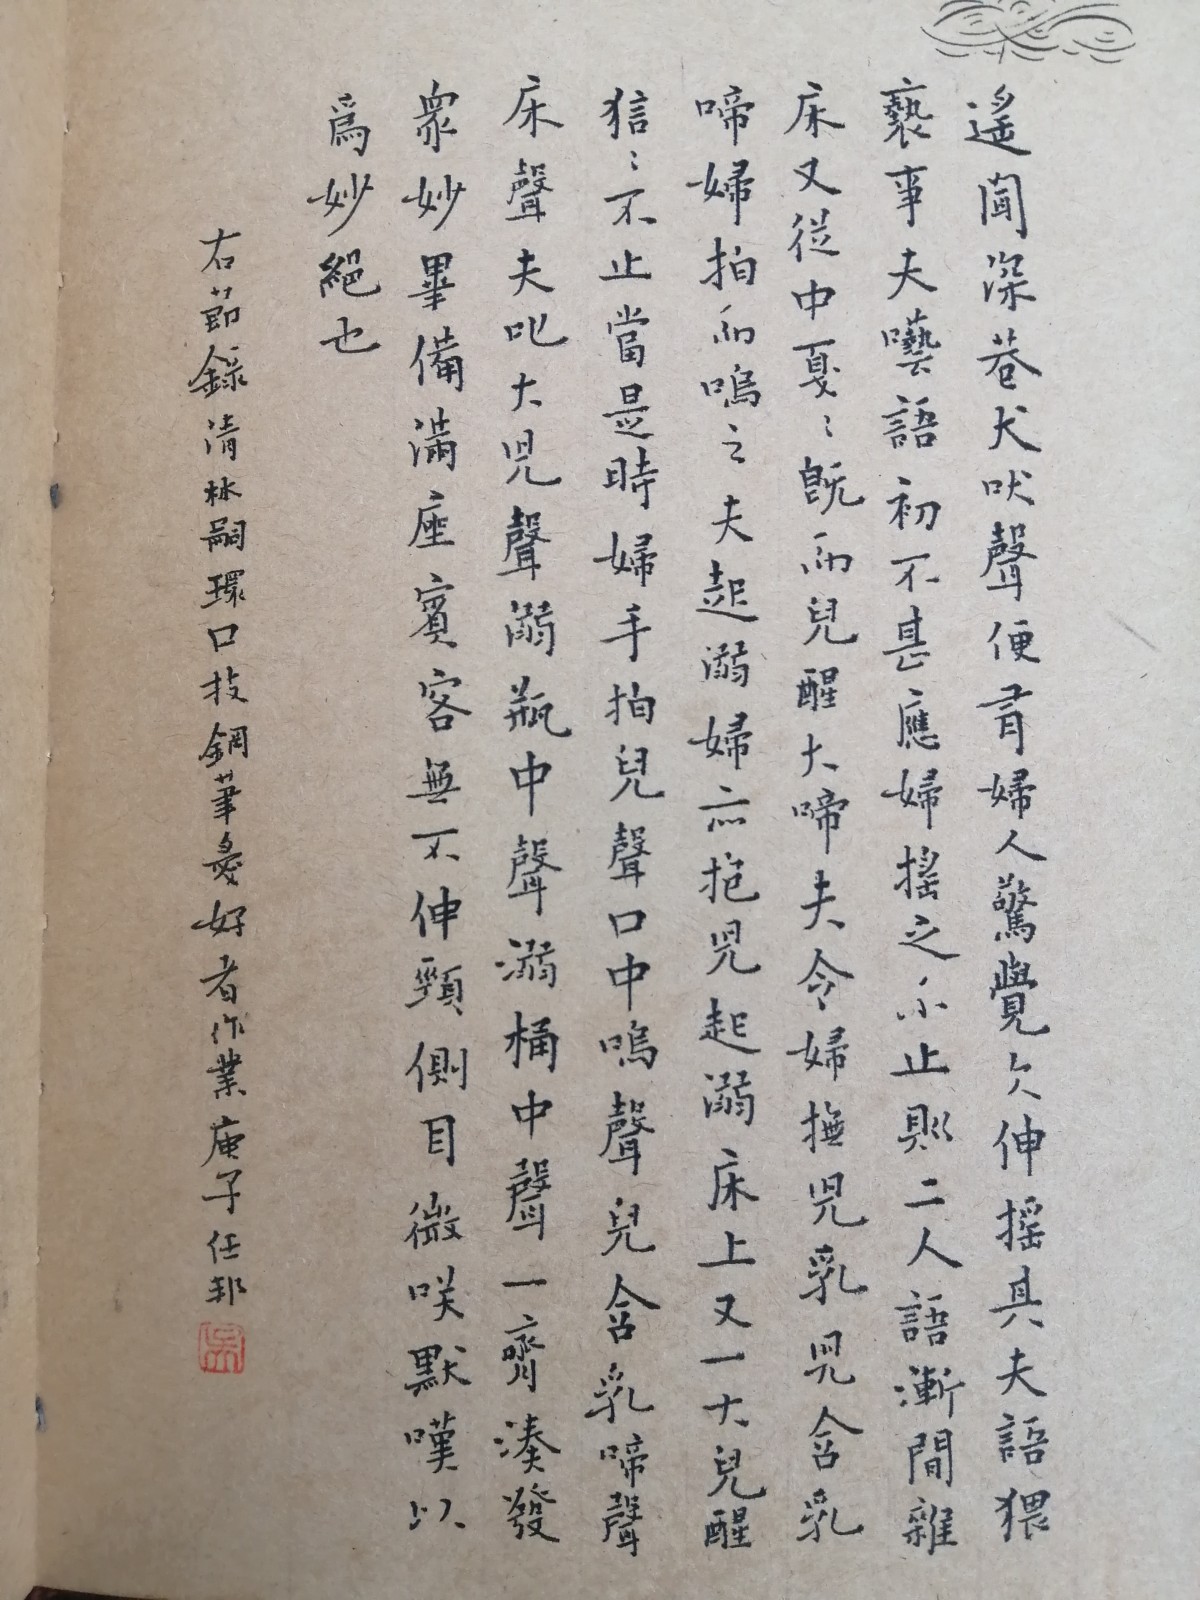 遙聞深巷犬吠聲便有婦人驚覺欠伸搖其夫語猥
褻事夫囈語初不甚應婦搖之不止則二人語漸間雜
床又從中戛〻既而兒醒大啼夫令婦撫兒乳兒含乳
啼婦拍而嗚之夫起溺婦亦抱兒起溺床上又一大兒醒
狺〻不止當是時婦手拍兒聲口中嗚聲兒含乳啼聲
床聲夫叱大兒聲溺瓶中聲溺桶中聲一齊湊發
眾妙畢備滿座賓客無不伸頸側目微咲默嘆以
爲妙絕也
右節錄清林嗣環口技鋼筆愛好者作業庚子任邦